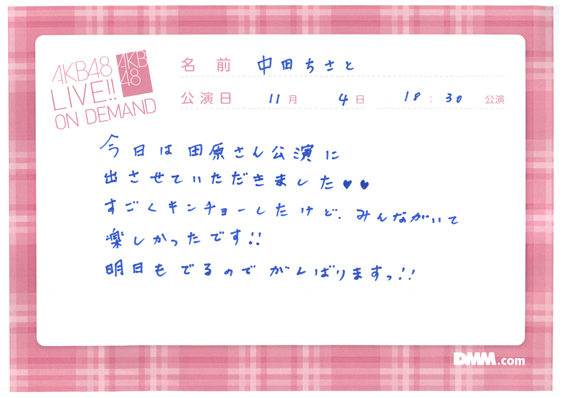 AKB48
LIVE!!
ON DEMAND
AKB
48
名前 中田ちさと
公演日 11月 4日 18:30 公演
今日は田原さん公演に
出させていただきました♥♥
すごくキンチョーしたけど、みんながいて
楽しかったです!!
明日もでるのでがんばりますっ!!
DMM.com